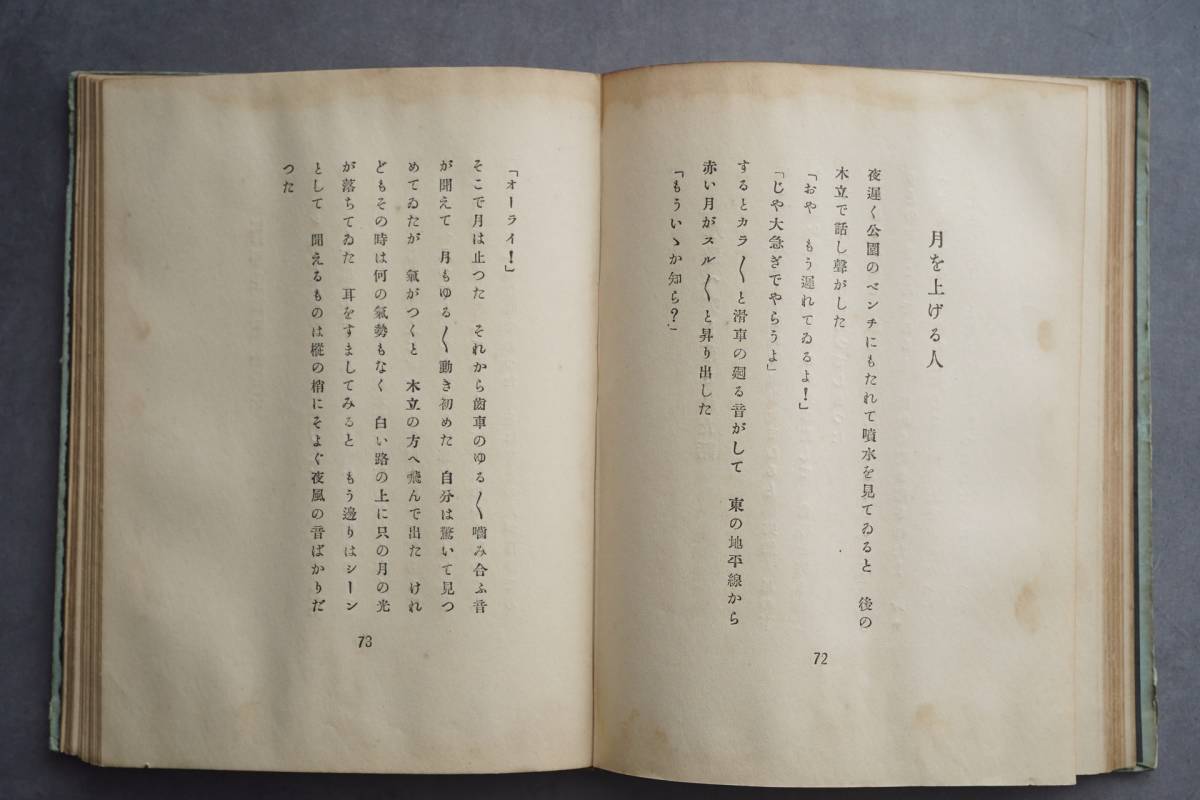 月を上げる人
夜遲く公園のベンチにもたれて噴水を見てゐると　後の
木立で話し聲がした
「おや　もう遲れてゐるよ！」
「じや大急ぎでやらうよ」
するとカラ〳〵と滑車の廻る音がして　東の地平線から
赤い月がスル〳〵と昇り出した
「もういゝか知ら？」
72
「オーライ！」
そこで月は止つた　それから齒車のゆる〳〵噛み合ふ音
が聞えて　月もゆる〳〵動き初めた　自分は驚いて見つ
めてゐたが　氣がつくと　木立の方へ飛んで出た　けれ
どもその時は何の氣勢もなく　白い路の上に只の月の光
が落ちてゐた　耳をすましてみると　もう邊りはシーン
として　聞えるものは樅の梢にそよぐ夜風の音ばかりだ
つた
73